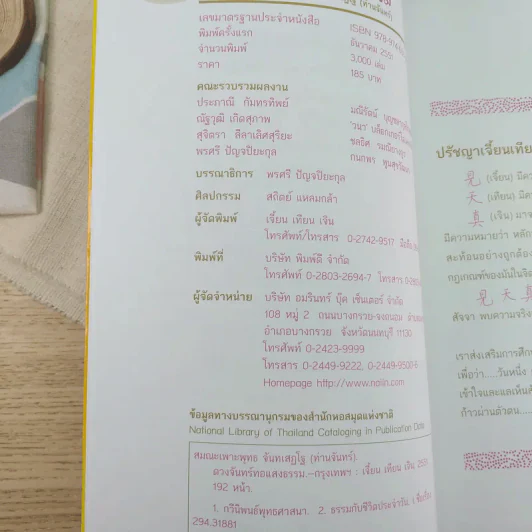 (ท่านจันทร์)
เลขมาตรฐานประจำหนังสือ ISBN
พิมพ์ครั้งแรก ธันวาคม
จำนวนพิมพ์ 3,000 เล่ม
ราคา 185 บาท
คณะรวบรวมผลงาน
ประภาณี กัมทรทิพย์ มณีรัตน์
ณัฐวุฒิ เกิดสุภาพ
สุจิตรา ลีลาเลิศสุริยะ ชลธิศ
พรศรี ปัญจปิยะกุล กนกพร
บรรณาธิการ พรศรี ปัญจปิยะกุล
ศิลปกรรม สถิตย์ แหลมกล้า
ผู้จัดพิมพ์ เจี้ยน เทียน เจิน
โทรศัพท์/โทรสาร 0-2742-9517
พิมพ์ที่ บริษัท พิมพ์ดี จำกัด
โทรศัพท์ 0-2803-2694-7 โทรสาร
ผู้จัดจำหน่าย บริษัท อมรินทร์ บุ๊ค เซ็นเตอร์ จำกัด
108 หมู่ 2 ถนนบางกรวย-จงถนอม
อำเภอบางกรวย จังหวัดนนทบุรี 11130
โทรศัพท์ 0-2423-9999
โทรสาร 0-2449-9222, 0-2449-9500-6
Homepage http://www.naiin.com
ข้อมูลทางบรรณานุกรมของสำนักหอสมุดแห่งชาติ
National Library of Thailand Cataloging In Publication Data
สมณะเพาะพุทธ จันทเสฏโฐ (ท่านจันทร์).
ดวงจันทร์ทอแสงธรรม.--กรุงเทพฯ : เจี้ยน เทียน เจิน,
192 หน้า.
1. กวีนิพนธ์พุทธศาสนา. 2. ธรรมกับชีวิตประจำวัน.
294.31881
ปรัชญาเจี้ยนเทีย
見 (เจี้ยน)
天 (เทียน)
真 (เจิน) มาจ
มีความหมายว่า หลัก
สะท้อนอย่างถูกต้อง
กฎเกณฑ์ของมันในจิต
見 天 真
สัจจา พบความจริง
เราส่งเสริมการศึก
เพื่อว่า.....วันหนึ่ง
เข้าใจและแลเห็นสั
ก้าวผ่านตัวตน.....